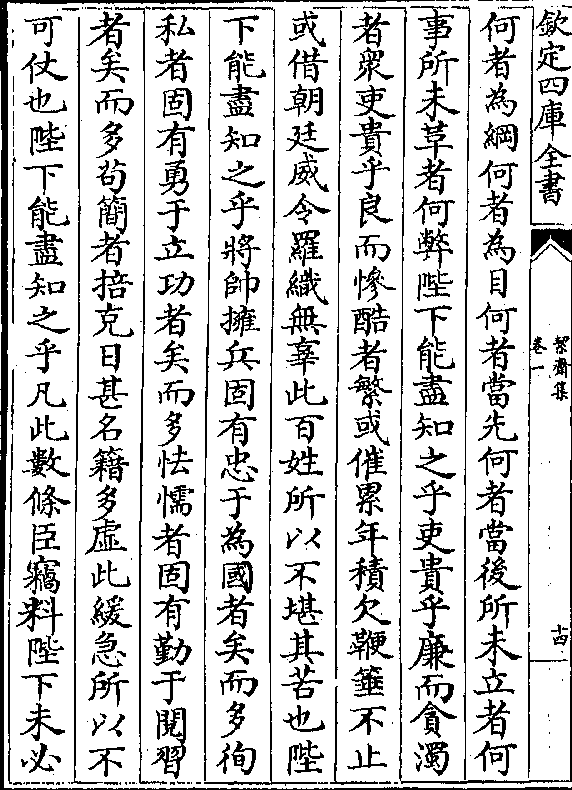 欽定四庫全書
絜齋集
卷一
十四
何者為綱何者為目何者當先何者當後所未立者何
事所未革者何弊陛下能盡知之乎吏貴乎廉而貪濁
者衆吏貴乎良而慘酷者繁或催累年積欠鞭箠不止
或借朝廷威令羅織無辜此百姓所以不堪其苦也陛
下能盡知之乎將帥擁兵固有忠于為國者矣而多徇
私者固有勇于立功者矣而多怯懦者固有勤于閱習
者矣而多苟簡者掊克日甚名籍多虛此緩急所以不
可仗也陛下能盡知之乎凡此數條臣竊料陛下未必